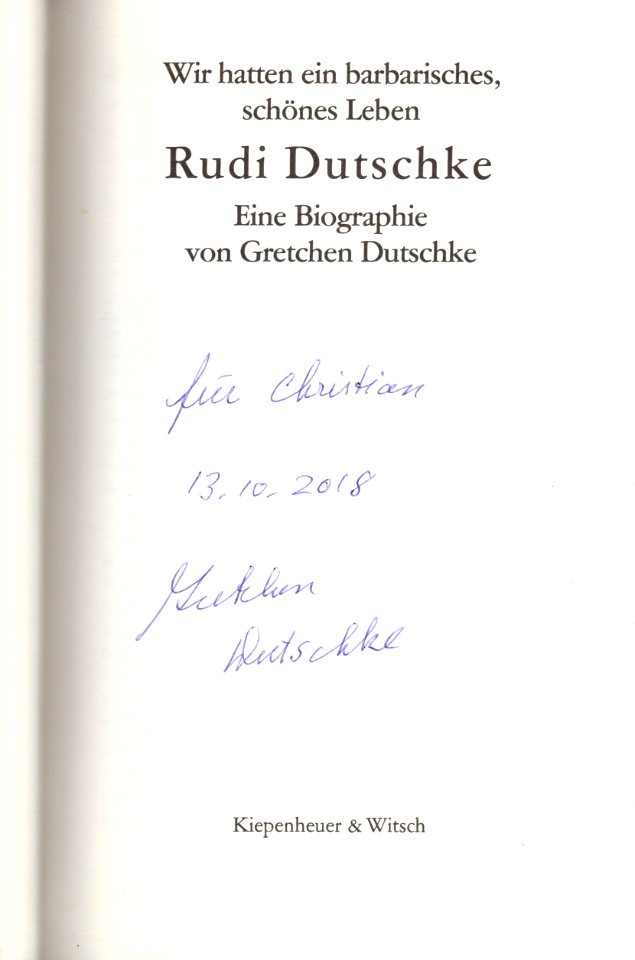 Wir hatten ein barbarisches,
schönes Leben
Rudi Dutschke
Eine Biographie
von Gretchen Dutschke
für Christian
13.10.2018
Gretchen
Dutschke
Kiepenheuer & Witsch